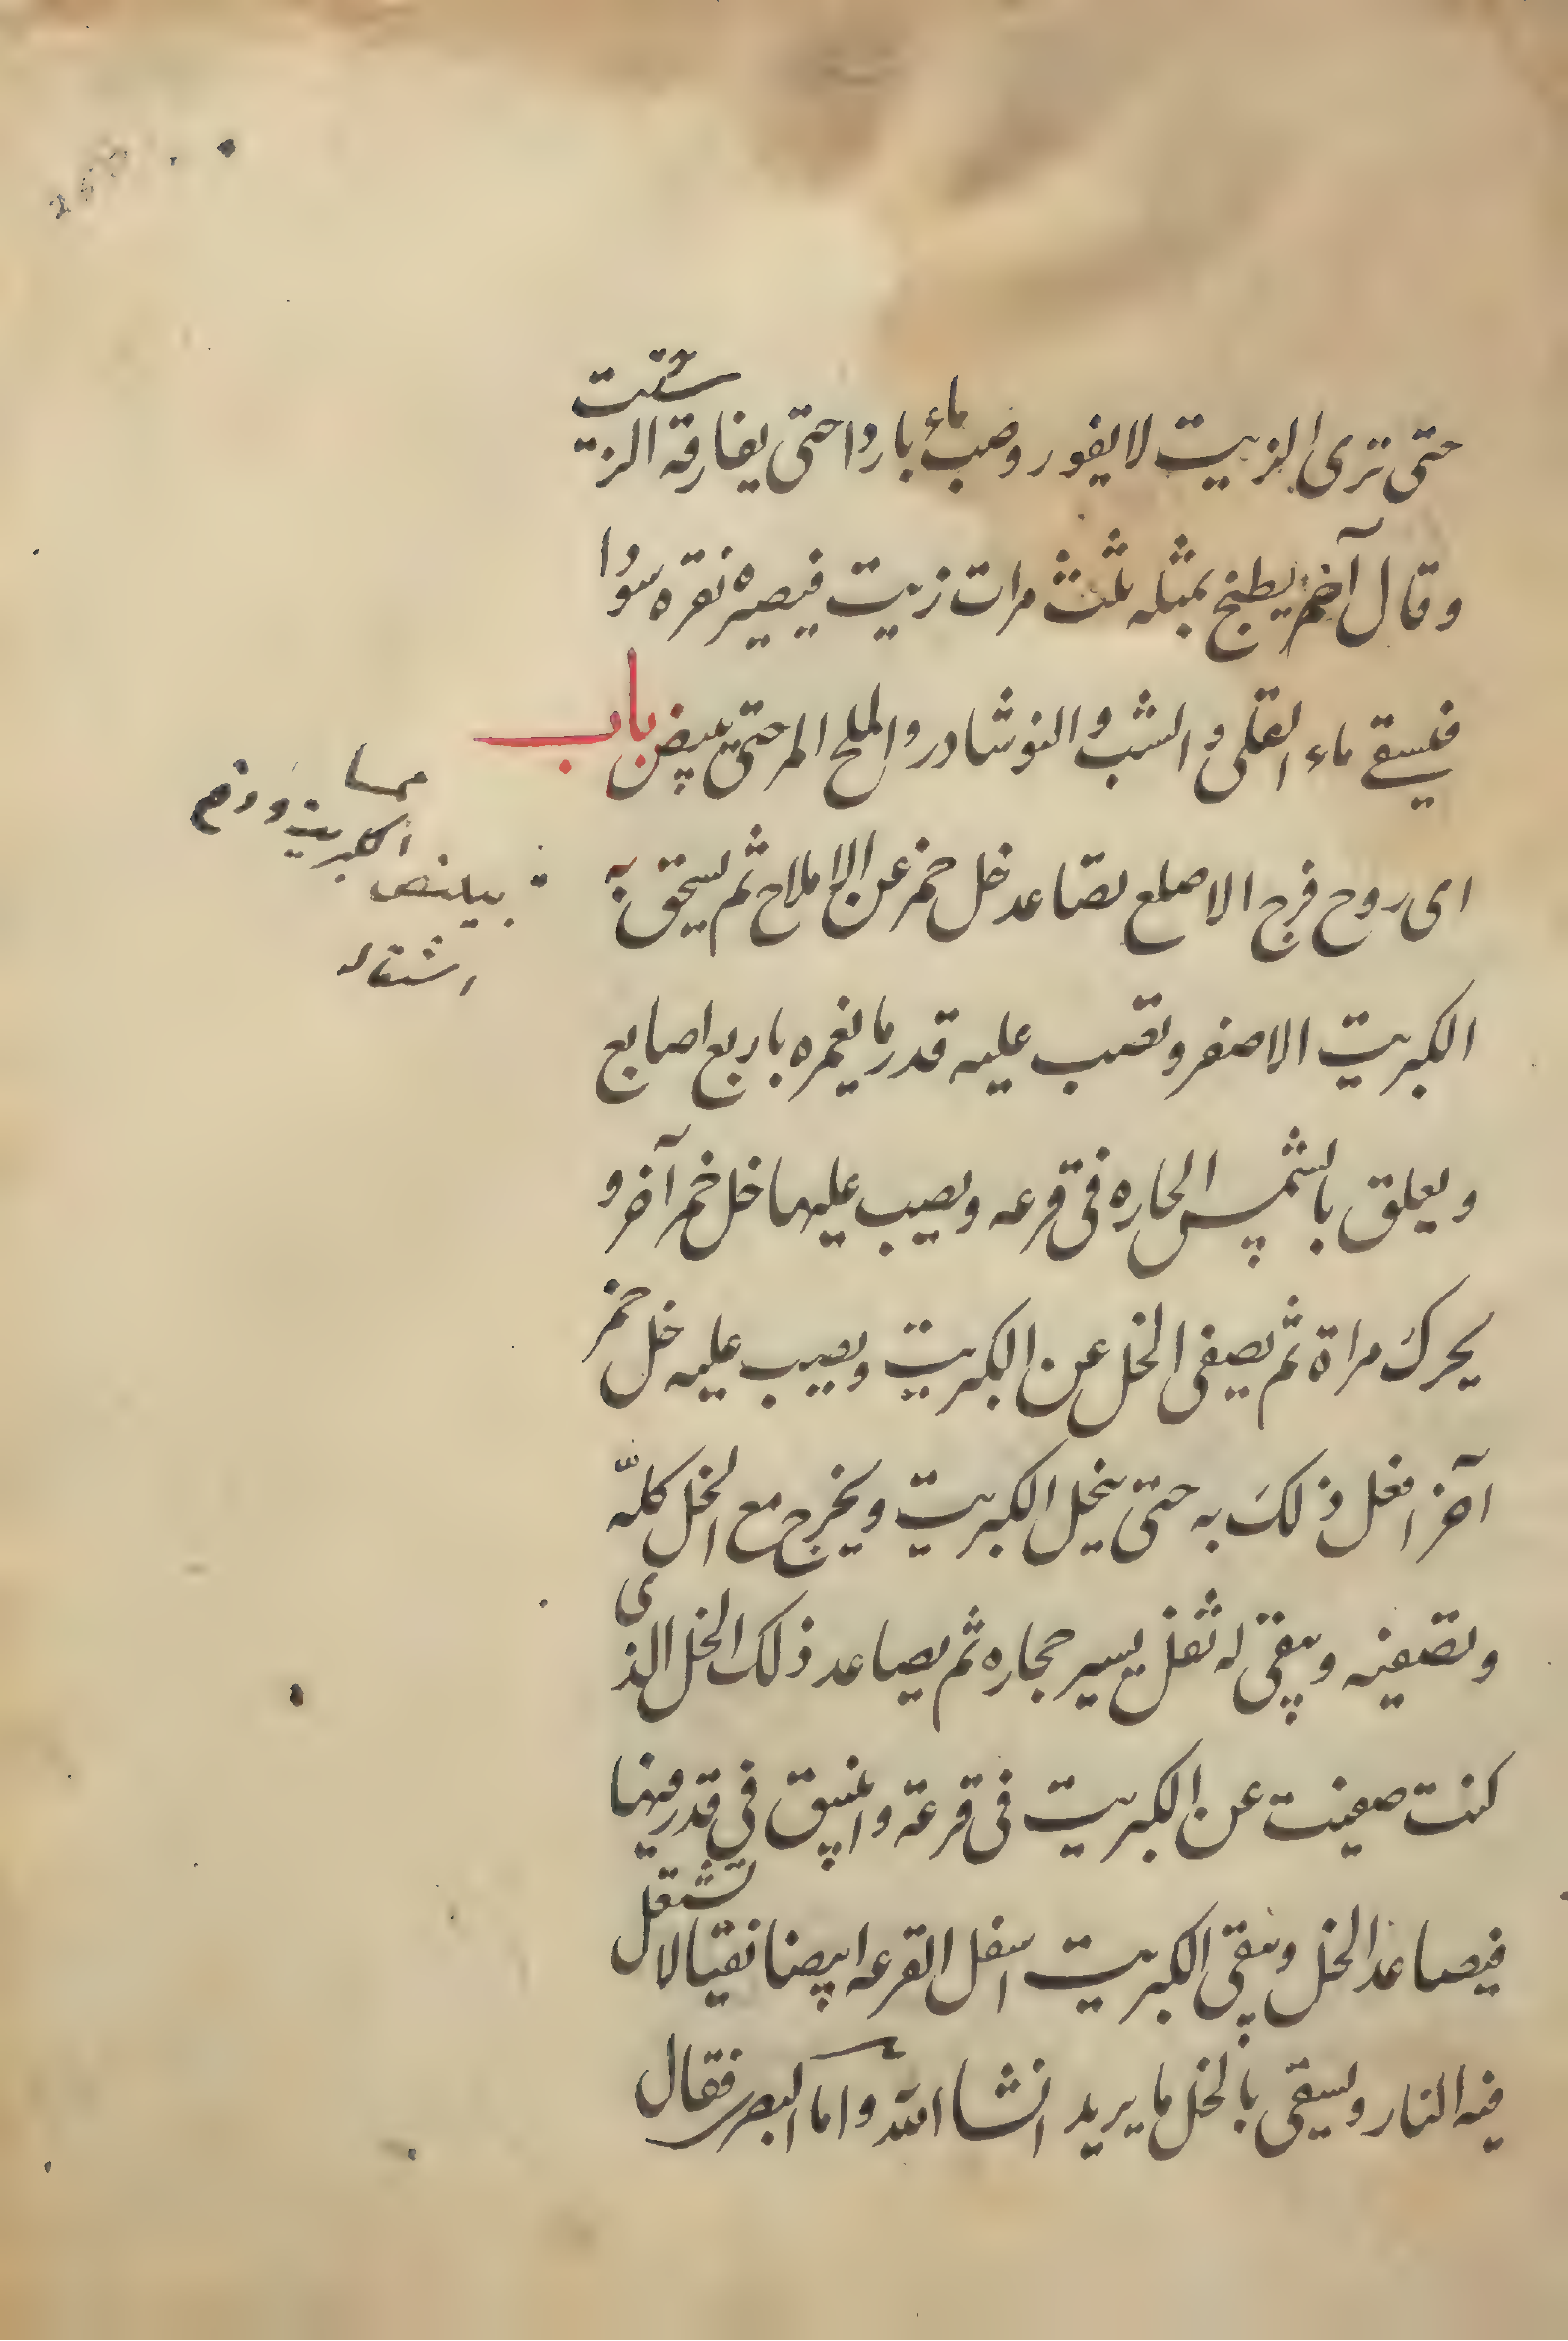 حتى ترى الزيت لا يفور وصب ماء باردا حتى يفارقه الزيت
وقال آخر يطبخ بمثله ثلث مرات زيت فيصير نقره سودا
فيسقى ماء القلى والشب والنوشادر والملح المر حتى يبيض باب
اى روح فرج الاصلع تصاعد خل خمر عن الاملاح ثم يسحق به
الكبريت الاصفر وتصب عليه قدر ما يغمره باربع اصابع
ويعلق بالشمس الحاره فى قرعه ويصب عليها خل خمر آخر و
يحرك مراة ثم يصفى الخل عن الكبريت ويصب عليه خل خمر
آخر افعل ذلك به حتى ينحل الكبريت ويخرج مع الخل كله
وتصفيه ويبقى له ثفل يسير حجاره ثم يصاعد ذلك الخل الذى
كنت صفيت عن الكبريت فى قرعة وانبيق فى قدر فيها
فيصاعد الخل ويبقى الكبريت اسفل القرعه ابيضا نقيا لا تشتعل
فيه النار ويسقى بالخل ما يريد انشا الله واما البصرى فقال
الكبريت